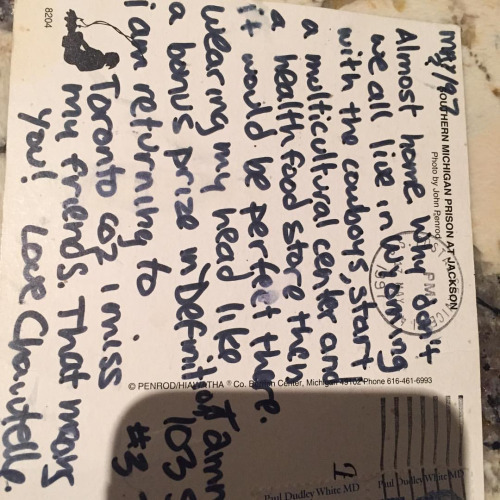 SOUTHERN MICHIGAN PRISON AT JACKSON
Photo by John Penrod
May/97
Almost home why don't
we all live in Wyoming
with the cowboys, start
a multicultural center and
a health food store then
it would be perfect there.
wearing my head like
a bonus prize in
i am returning to
Toronto coz I miss
my friends. That means
you! Love Chantelle.
8204
PM
1997
© PENROD/HIAWATHA ® Co. Center, Michigan 49102 Phone 616-461-6993
103
#3
Paul Dudley White MD
Paul Dudley White MD